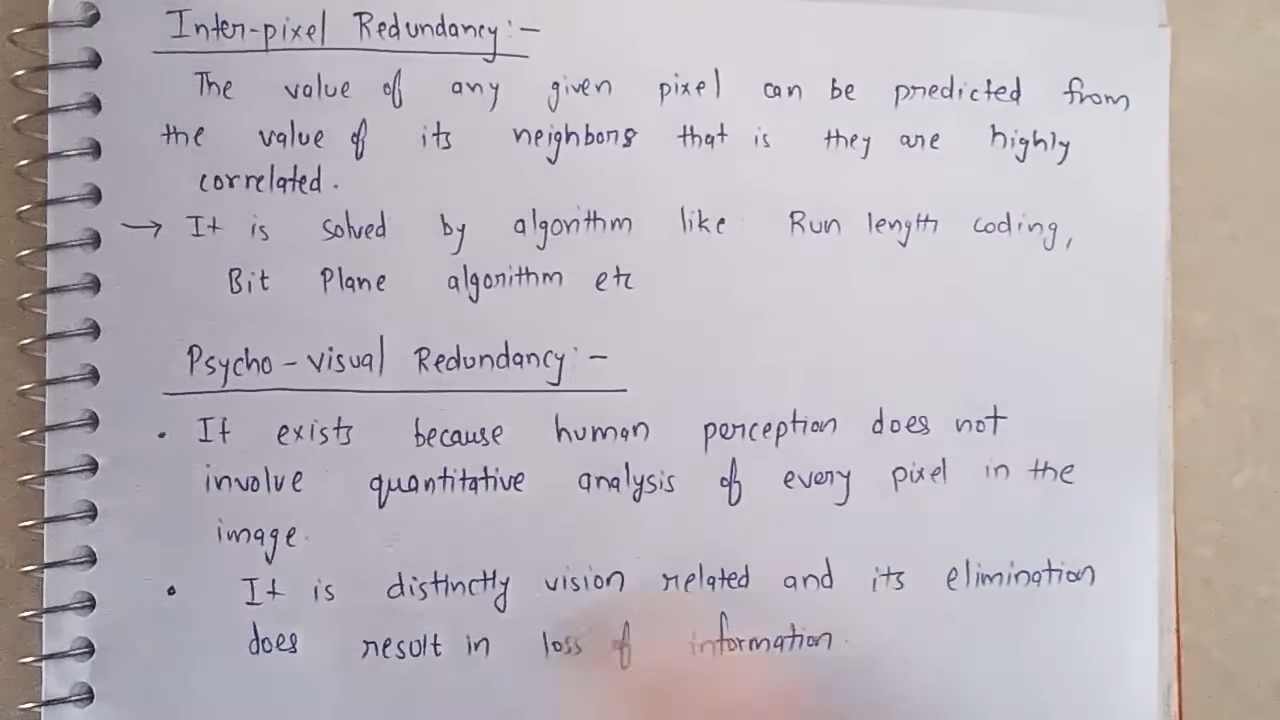 Inter-pixel Redundancy:-
The value of any given pixel can be predicted from
the value of its neighbors that is they are highly
correlated.
→ It is solved by algorithm like Run length coding,
Bit Plane algorithm etc
Psycho-visual Redundancy:-
• It exists because human perception does not
involve quantitative analysis of every pixel in the
image.
• It is distinctly vision related and its elimination
does result in loss of information.